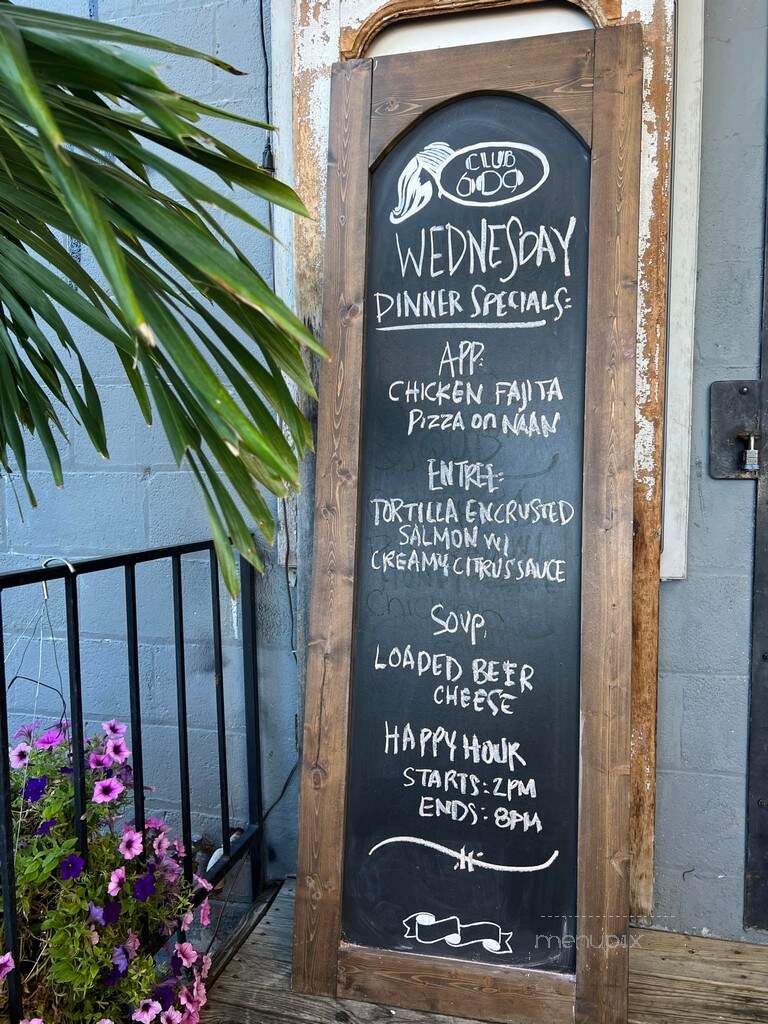 CLUB
609
WEDNESDAY
DINNER SPECIALS:
APP:
CHICKEN FAJITA
PIZZA on NAAN
ENTREE:
TORTILLA ENCRUSTED
SALMON W/
CREAMY CITRUS SAUCE
SOUP:
LOADED BEER
CHEESE
HAPPY HOUR
STARTS: 2PM
ENDS: 8PM
menupix